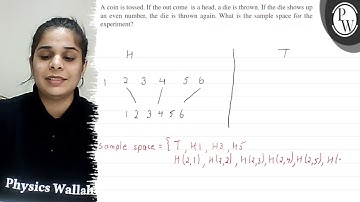 A coin is tossed. If the out come is a head, a die is thrown. If the die shows up
an even number, the die is thrown again. What is the sample space for the
experiment?
PW
H T
1 2 3 4 5 6
1 2 3 4 5 6
sample space = { T, H1, H3, H5
H(2,1), H(2,2), H(2,3), H(2,4), H(2,5), H(
Physics Wallah